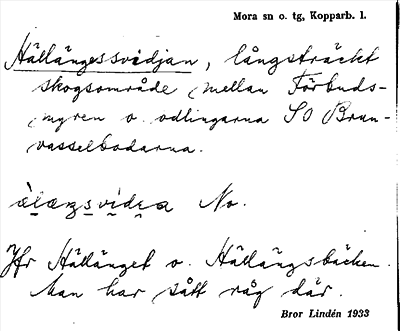 Mora sn o. tg, Kopparb. l.
Hällängessvidjan, långsträckt
skogsområde mellan Förbuds-
myren o. odlingarna SO Brun-
vasselbodarna.
No.
Jfr Hällänget o. Hällängsbäcken.
Man har sått råg där.
Bror Lindén 1933